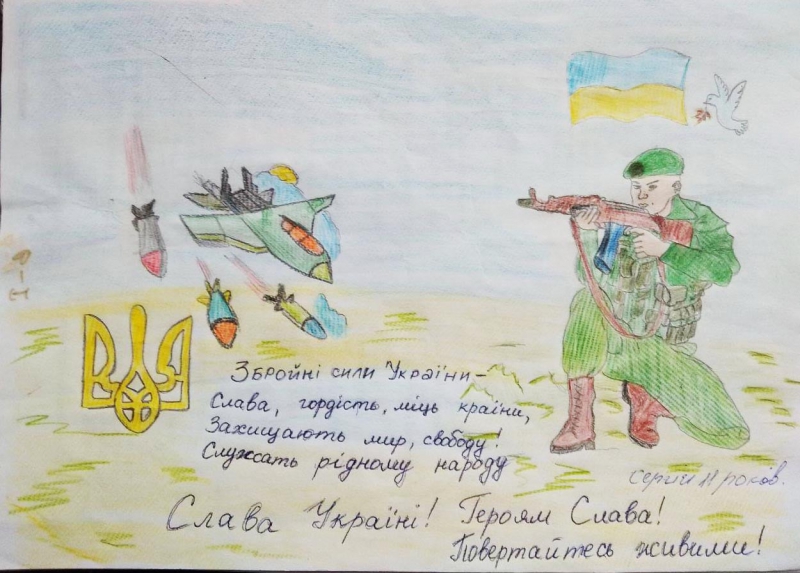 Збройні сили України –
Слава, гордість, міць країни,
Захищають мир, свободу!
Служать рідному народу
Сергій 11 років.
Слава Україні! Героям Слава!
Повертайтесь живими!